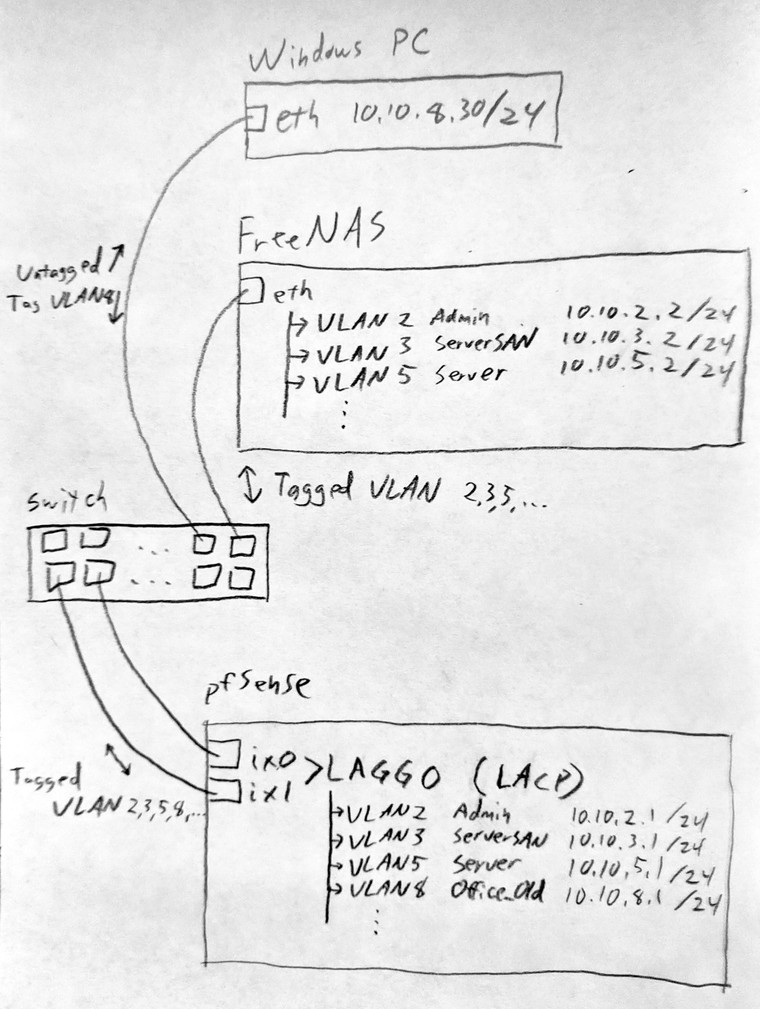 Windows PC
eth 10.10.8.30/24
Untagged
Tag VLAN8
FreeNAS
eth
VLAN 2 Admin 10.10.2.2/24
VLAN 3 ServerSAN 10.10.3.2/24
VLAN 5 Server 10.10.5.2/24
Tagged VLAN 2,3,5,...
Switch
pfSense
ix0 > LAGG0 (LACP)
ix1
Tagged
VLAN 2,3,5,8,...
VLAN2 Admin 10.10.2.1/24
VLAN3 ServerSAN 10.10.3.1/24
VLAN5 Server 10.10.5.1/24
VLAN8 Office_Old 10.10.8.1/24